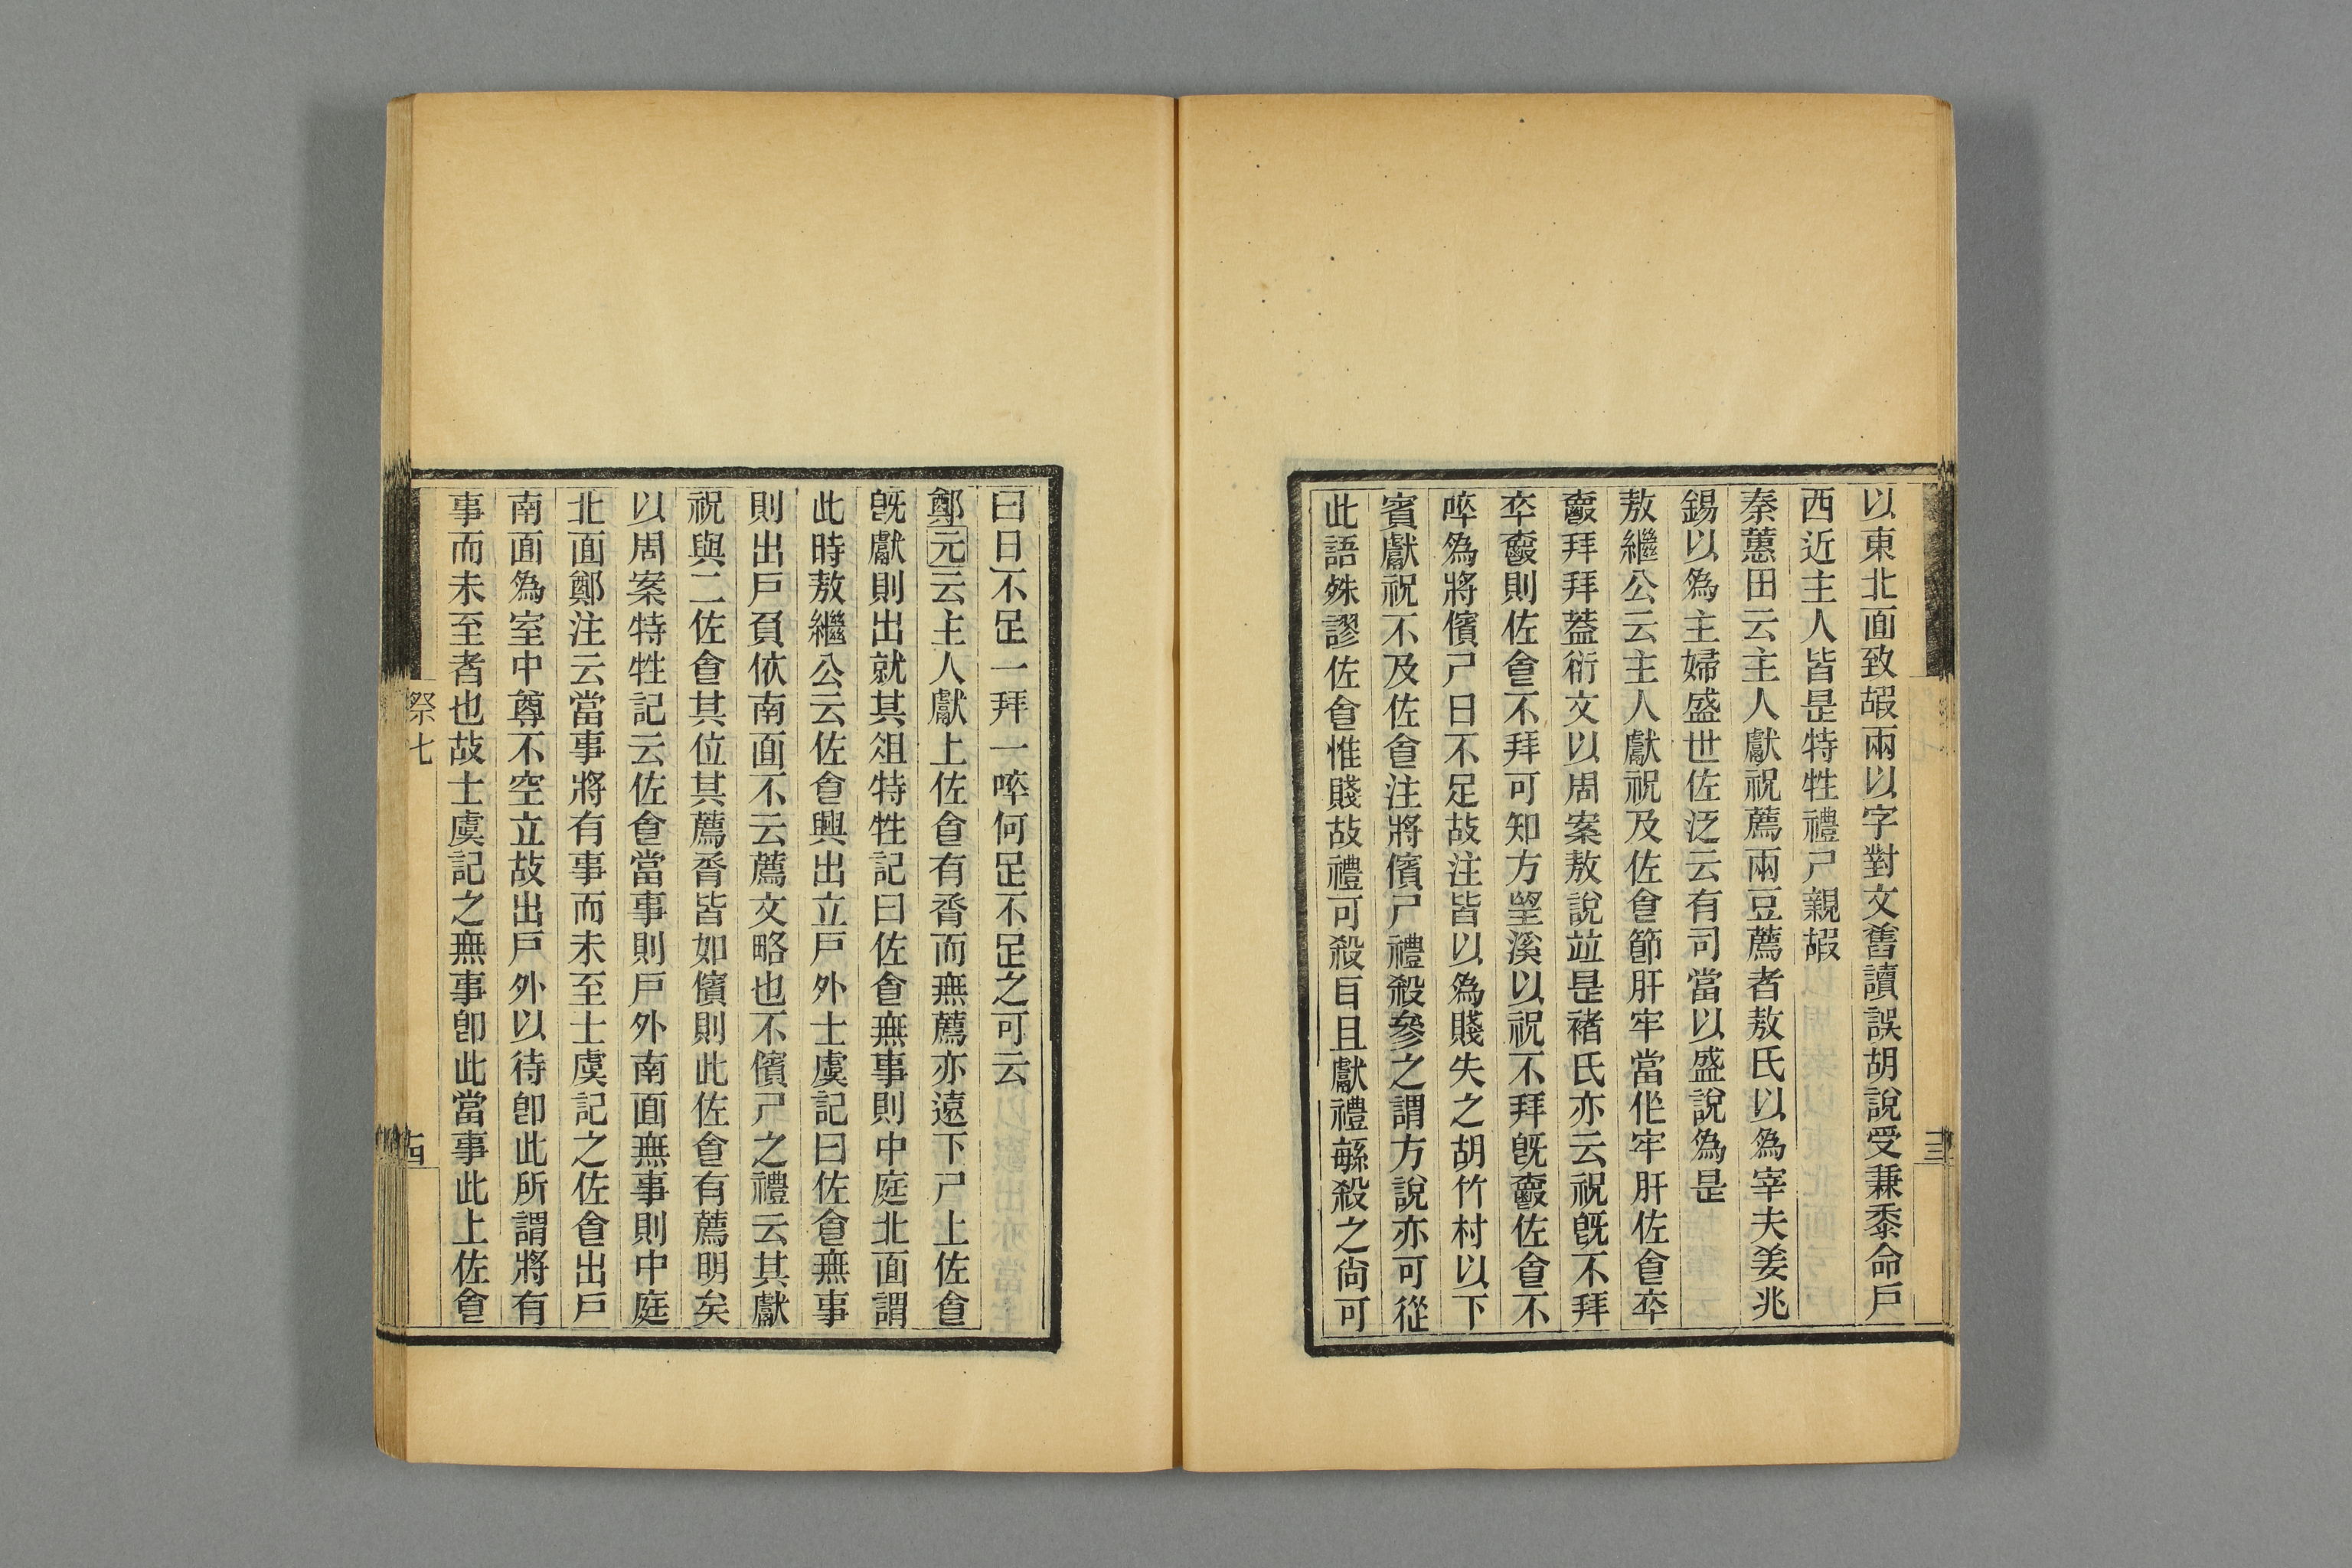 以東北面致嘏兩以字對文舊讀誤胡說受秉黍命戶
西近主人皆是特牲禮尸親嘏
秦蕙田云主人獻祝薦兩豆薦者敖氏以為宰夫姜兆
錫以為主婦盛世佐泛云有司當以盛說為是
敖繼公云主人獻祝及佐食節肝牢當作牢肝佐食卒
爵拜拜蓋衍文以周案敖說竝是褚氏亦云祝旣不拜
卒爵則佐食不拜可知方望溪以祝不拜旣爵佐食不
啐為將儐尸日不足故注皆以為賤失之胡竹村以下
賓獻祝不及佐食注將儐尸禮殺參之謂方說亦可從
此語殊謬佐食惟賤故禮可殺自且獻禮繇殺之尙可
曰日不足一拜一啐何足不足之可云
鄭元云主人獻上佐食有脀而無薦亦遠下尸上佐食
旣獻則出就其俎特牲記曰佐食無事則中庭北面謂
此時敖繼公云佐食興出立戶外士虞記曰佐食無事
則出戶負依南面不云薦文略也不儐尸之禮云其獻
祝與二佐食其位其薦脀皆如儐則此佐食有薦明矣
以周案特牲記云佐食當事則戶外南面無事則中庭
北面鄭注云當事將有事而未至士虞記之佐食出戶
南面為室中尊不空立故出戶外以待卽此所謂將有
事而未至者也故士虞記之無事卽此當事此上佐食
祭七